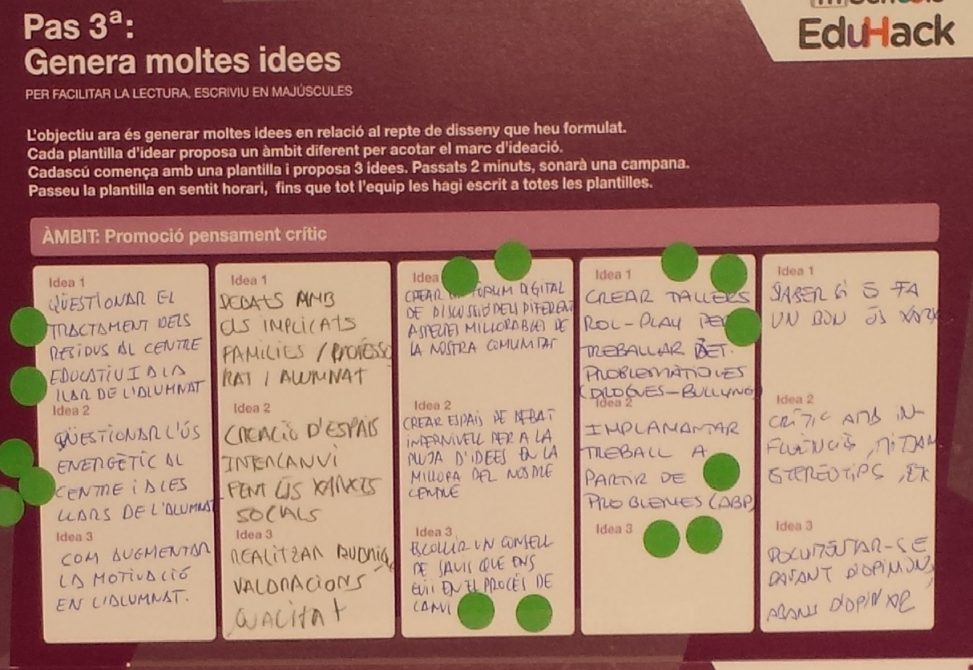 Schools
EduHack
Pas 3ª:
Genera moltes idees
PER FACILITAR LA LECTURA, ESCRIVIU EN MAJÚSCULES
L'objectiu ara és generar moltes idees en relació al repte de disseny que heu formulat.
Cada plantilla d'idear proposa un àmbit diferent per acotar el marc d'ideació.
Cadascú comença amb una plantilla i proposa 3 idees. Passats 2 minuts, sonarà una campana.
Passeu la plantilla en sentit horari, fins que tot l'equip les hagi escrit a totes les plantilles.
ÀMBIT: Promoció pensament crític
Idea 1
QÜESTIONAR EL
TRACTAMENT DELS
RESIDUS AL CENTRE
EDUCATIU I A LA
LLAR DE L'ALUMNAT
Idea 2
QÜESTIONAR L'ÚS
ENERGÈTIC AL
CENTRE I A LES
LLARS DE L'ALUMNAT
Idea 3
COM AUGMENTAR
LA MOTIVACIÓ
EN L'ALUMNAT.
Idea 1
DEBATS AMB
ELS IMPLICATS
FAMILIES / PROFESSO
RAT I ALUMNAT
Idea 2
CREACIÓ D'ESPAIS
INTERCANVI
FENT ÚS XARXES
SOCIALS
Idea 3
REALITZAR
VALORACIONS
QUALITAT
Idea
CREAR UN FORUM DIGITAL
DE DISCUSSIÓ DELS DIFERENT
ASPECTES MILLORABLES DE
LA NOSTRA COMUNITAT
Idea 2
CREAR ESPAIS DE DEBAT
INTERNIVELL PER A LA
PLUJA D'IDEES EN LA
MILLORA DEL NOSTRE
CENTRE
Idea 3
ESCOLLIR UN CONSELL
DE SAVIS QUE ENS
GUII EN EL PROCÉS DE
CANVI
Idea 1
CREAR TALLERS
ROL-PLAY PER
TREBALLAR DET.
PROBLEMÀTIQUES
(DROGUES-BULLYING)
Idea 2
IMPLAMANTAR
TREBALL A
PARTIR DE
PROBLEMES (ABP)
Idea 3
Idea 1
SABER SI ES FA
UN BON ÚS XARX
Idea 2
CRÍTIC AMB IN-
FLUÈNCIES, MITJAN
ESTEREOTIPS,
Idea 3
DOCUMENTAR-SE
DAVANT D'OPINIONS,
ABANS D'OPINAR